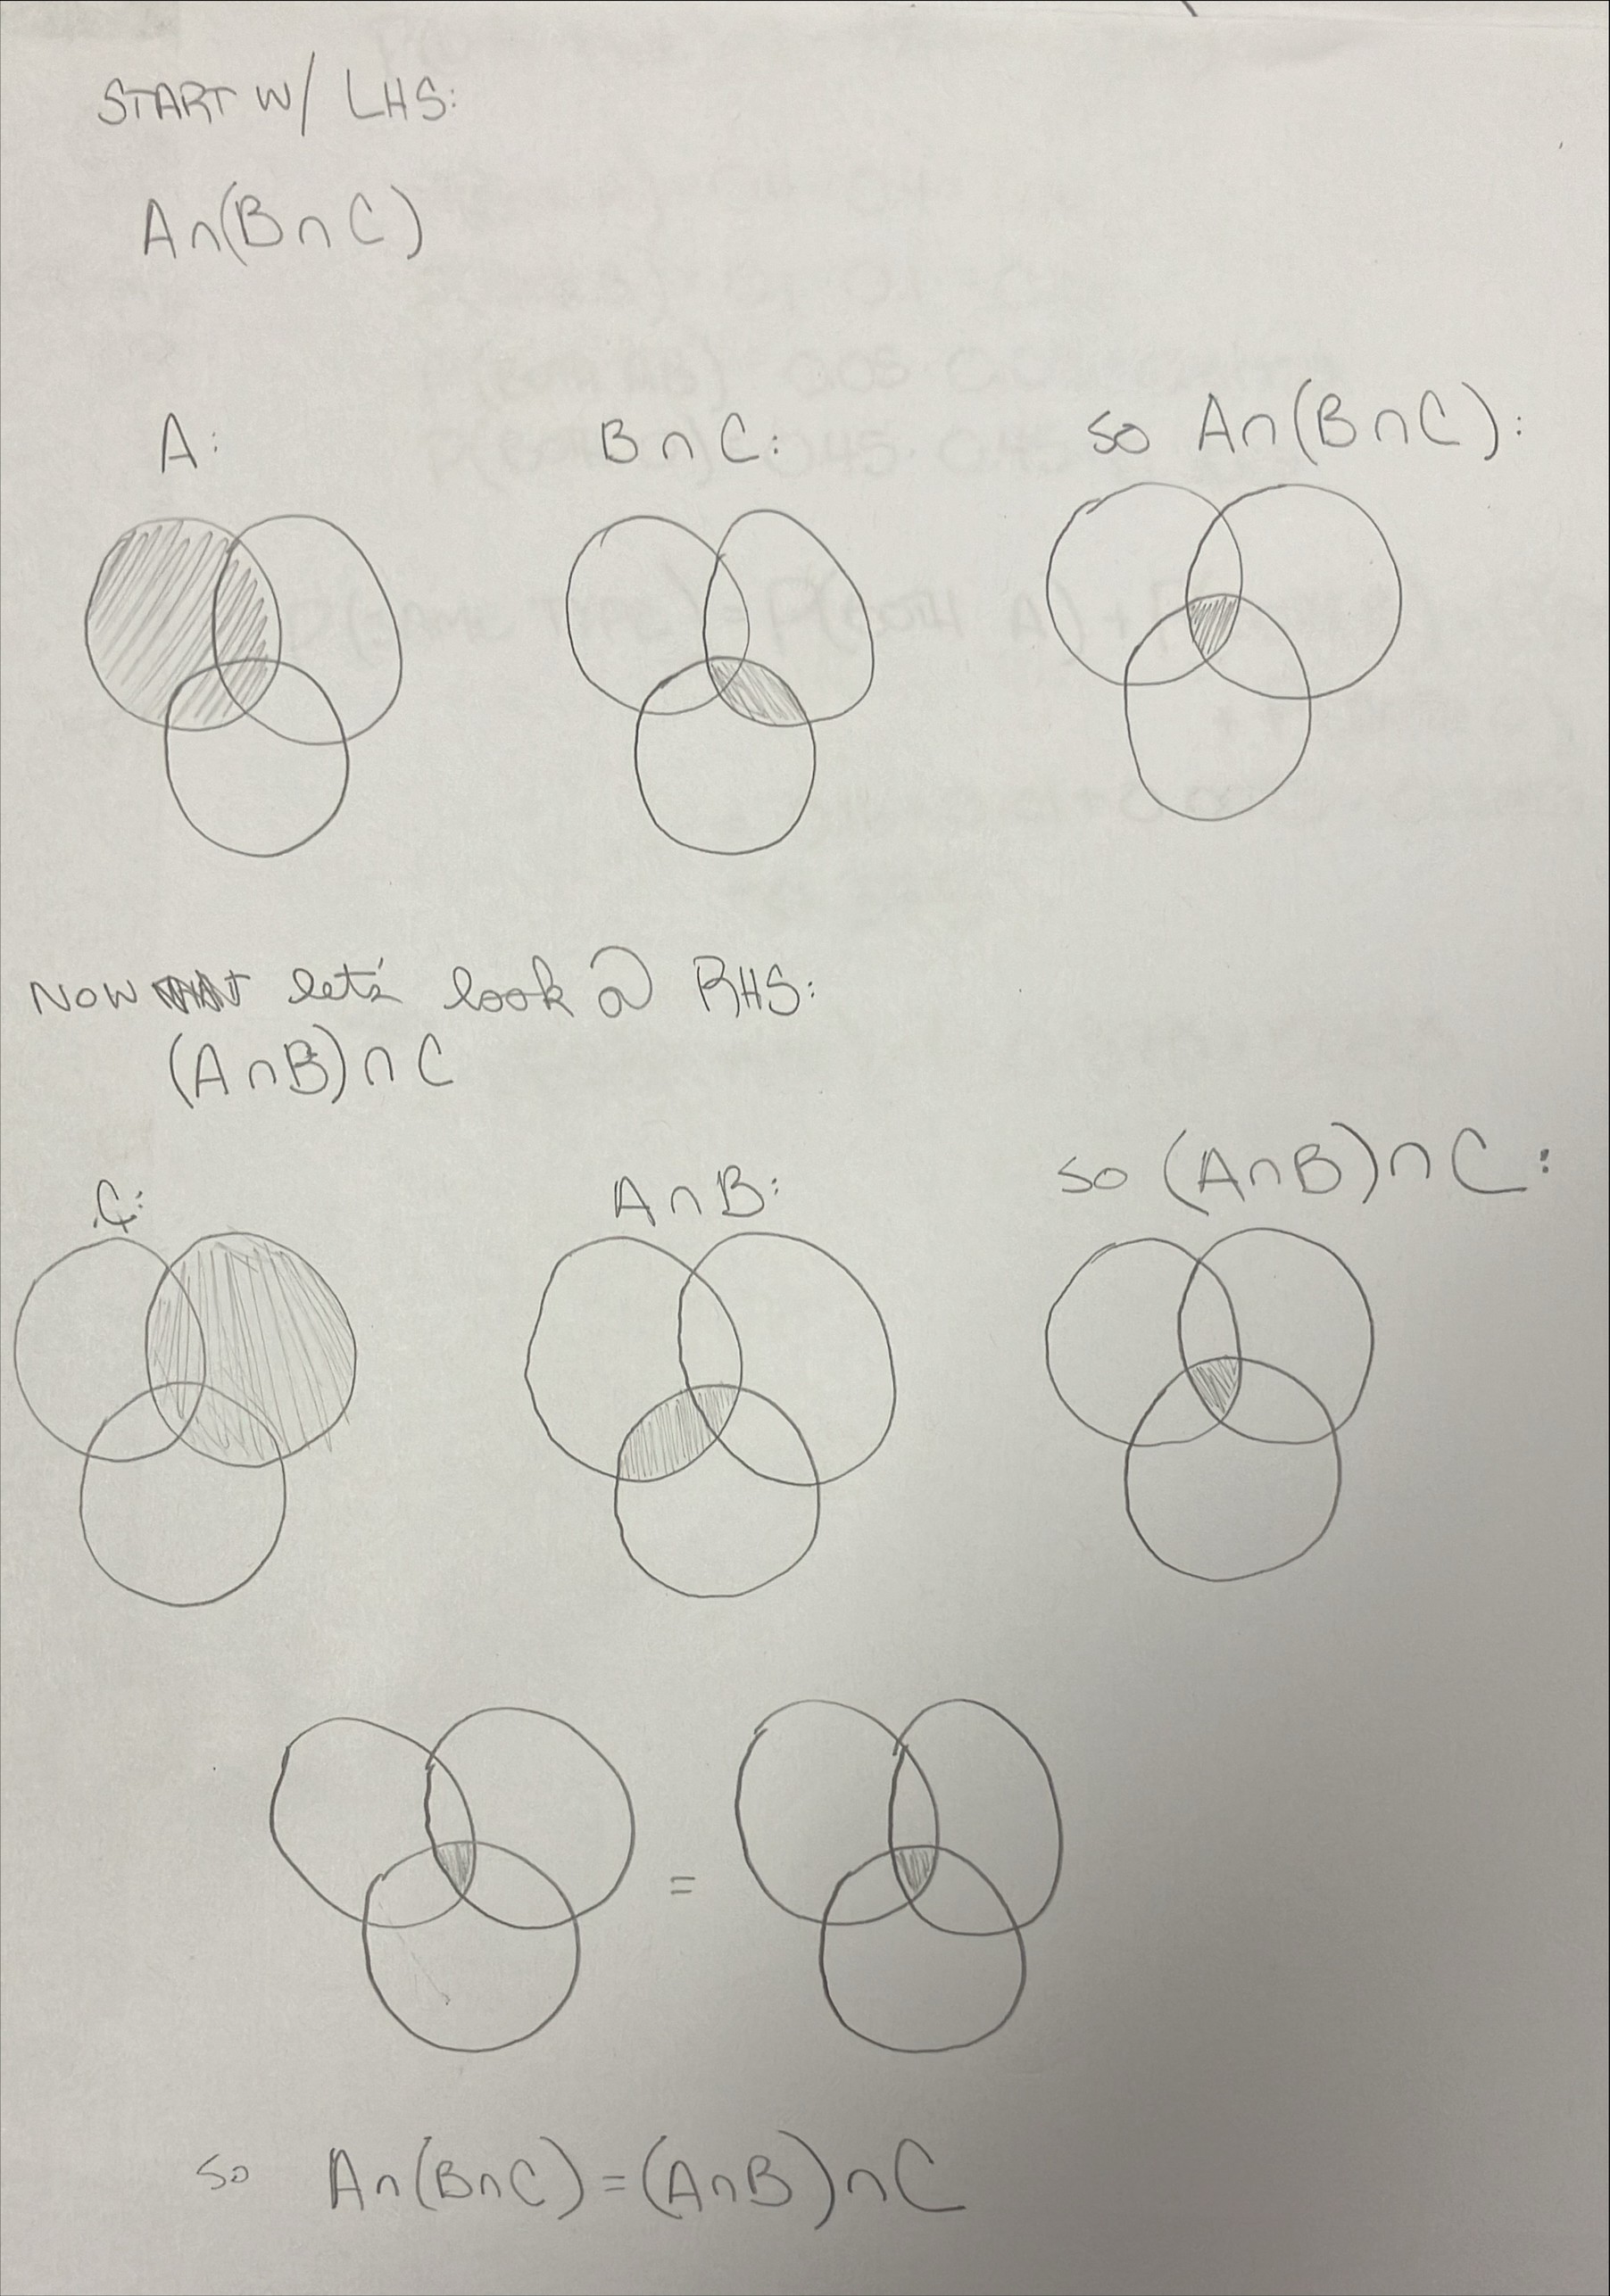 START W/ LHS:
A∩(B∩C)
A: B∩C: so A∩(B∩C):
NOW let's look @ RHS:
(A∩B)∩C
C: A∩B: so (A∩B)∩C:
=
so A∩(B∩C)=(A∩B)∩C